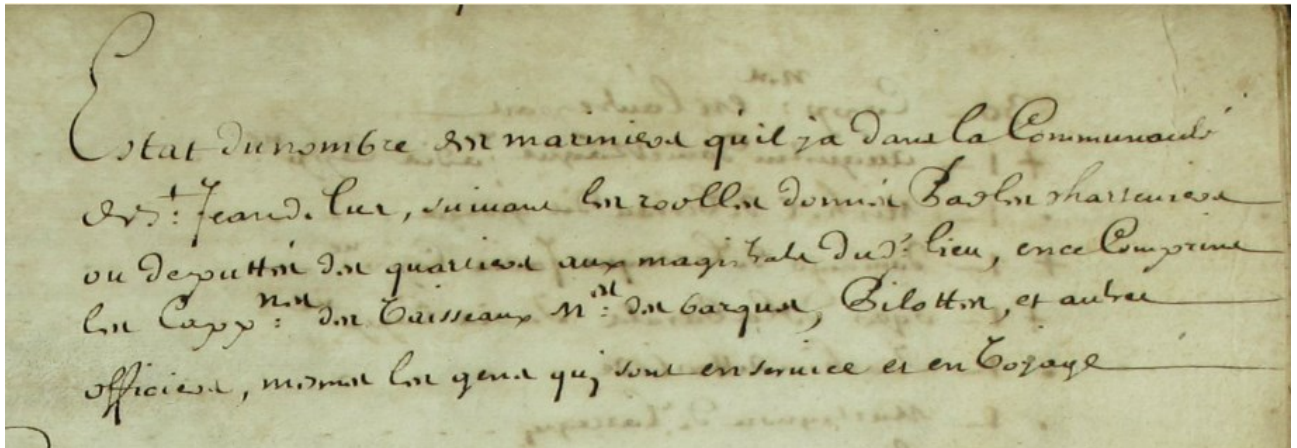 Estat du nombre des mariniers qu'il ja dans la Communauté
de St. Jean de luz, suivant les roolles donnés Par les
ou deputtés des quartiers aux magistrats dud. lieu, en ce Comprins
les Cappnes. des Vaisseaux Mres. des barques, Pilottes, et autres
officiers, mesmes les gens quy sont en service et en Voyage